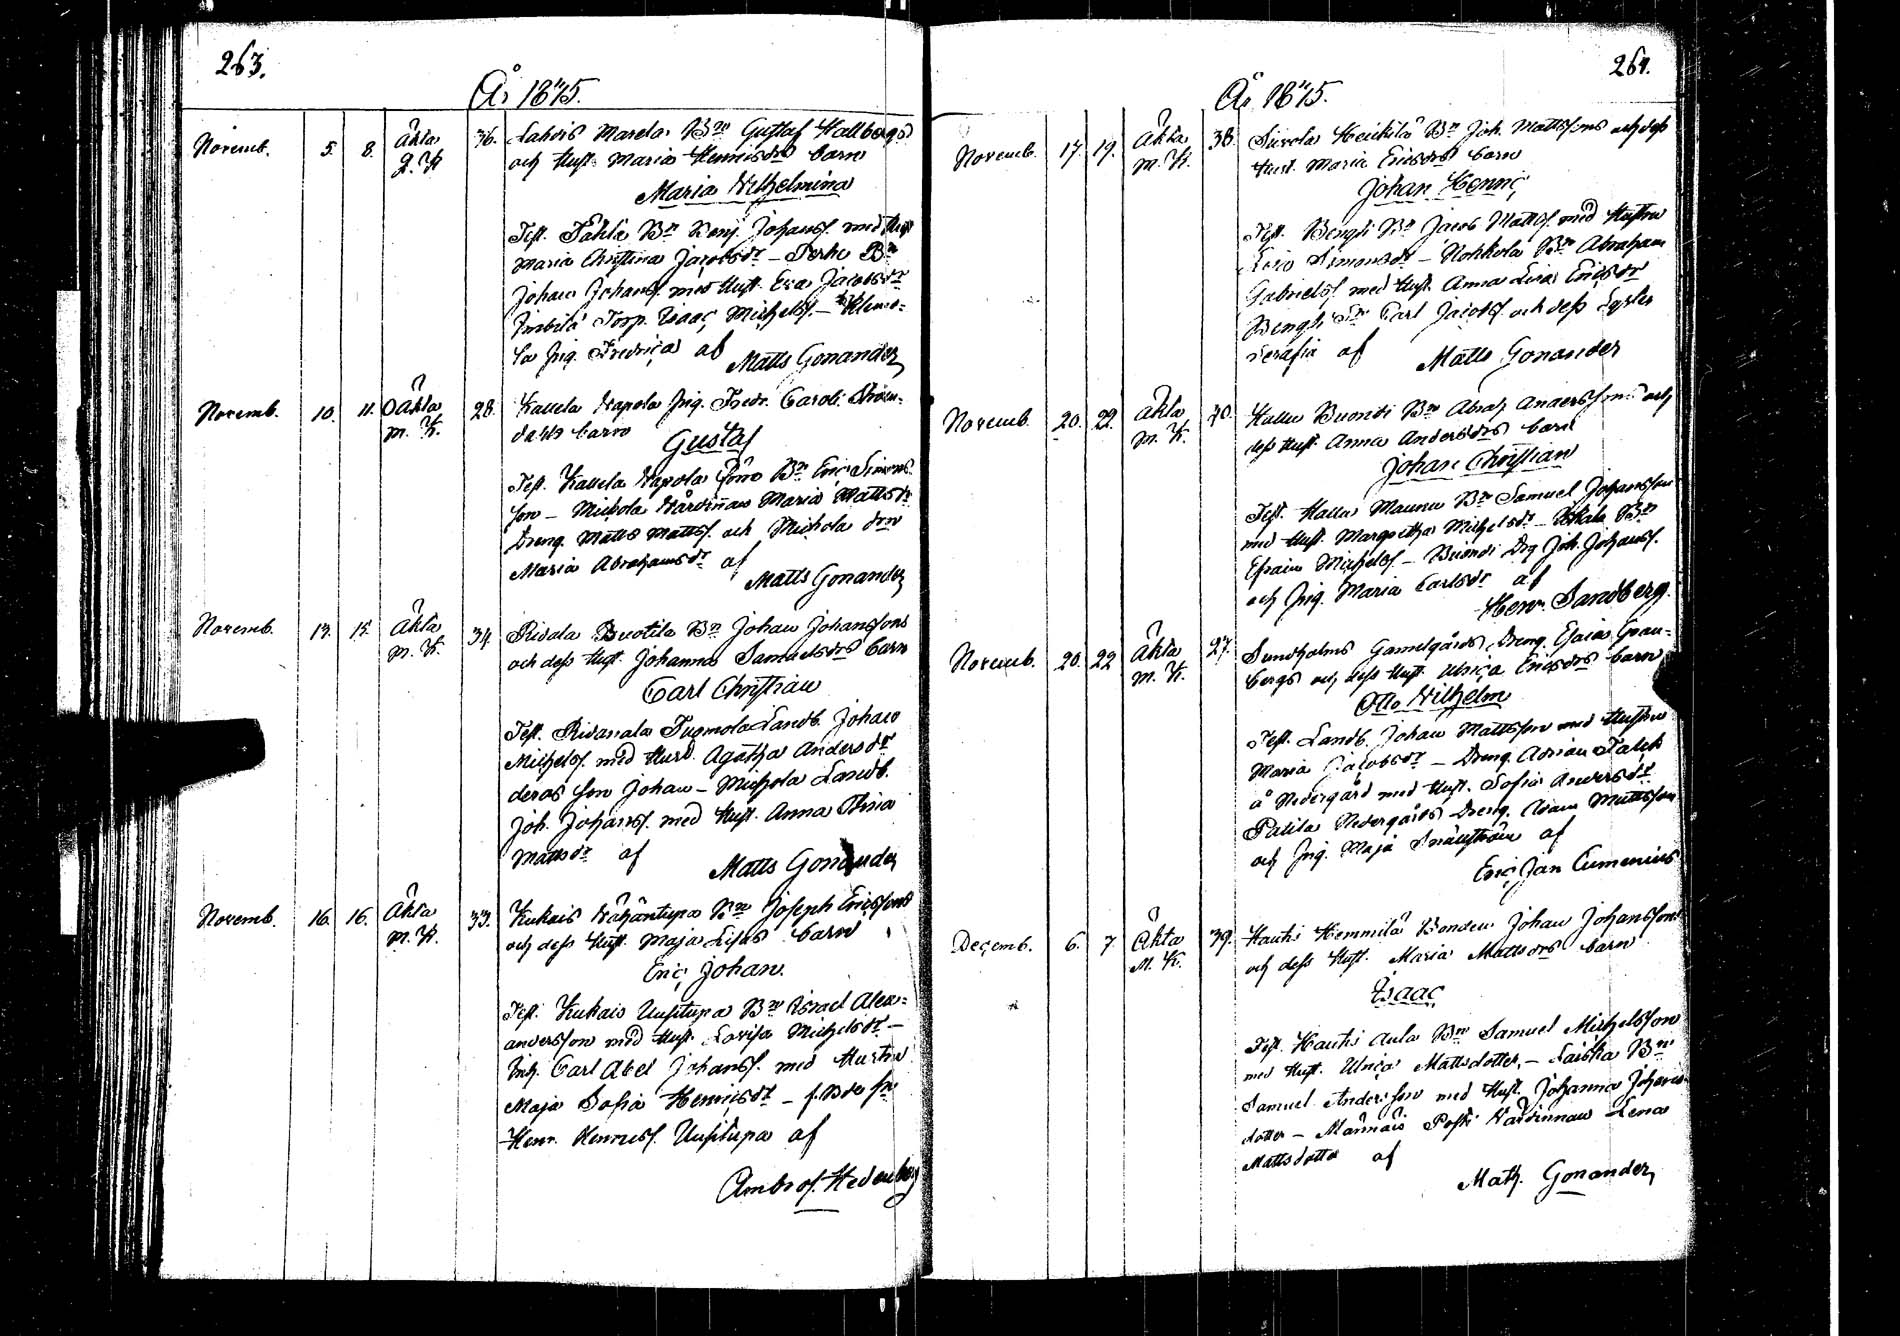 263.
År 1845.
Novemb. 5. 8. Äkta Q. K. 36. Lahvis Marela Bn Gustaf Hallbergs
och Hust. Maria Henricsdrs barn
Maria Wilhelmina
Test. Bn Benj. Johanss. med Hust
Maria Christina Jacobsdr — Bn
Johan Johanss. med Hust. Eva Jacobsdr
Torp. Isaac Michelss. —
Pig. Fredrica af Matts Gonander
Novemb. 10. 11. Oäkta M. K. 28. Kauela Napola Pig. Fredr. Carol.
dahls barn
Gustaf
Test. Kauela Napola Bn Eric Simons
son — Michola Wärdinnan Maria Mattsdr
Dreng. Matts Mattss. och Michola
Maria Abrahamsdr af
Matts Gonander
Novemb. 13. 15. Äkta M. K. 34 Ridala Buotila Bn Johan Johanssons
och dess Hust. Johanna Samuelsdrs barn
Carl Christian
Test. Tuomola Landb. Johan
Michelss. med Hust. Agatha Andersdr
deras son Johan — Michola Landb.
Joh. Johanss. med Hust. Anna Stina
Mattsdr af
Matts Gonander
Novemb. 16. 16. Äkta M. K. 33. Kukais Wähäntupa Bn Joseph Ericssons
och dess Hust. Maja Lisas barn
Eric Johan.
Test. Kukais Uusitupa Bn Israel Alex=
andersson med Hust. Lovisa Michelsdr —
Inh. Carl Abel Johanss. med Hustru
Maja Sofia Henricsdr —
Henr. Henricss. Uusitupa af
Ambros. Hedenberg
264.
År 1845.
Novemb. 17. 19. Äkta M. K. 38. Sarvola Heickilä Bn Joh. Mattssons och dess
Hust. Maria Ericsdrs barn
Johan Henric
Test. Bengts Bn Jacob Mattss. med Hustru
Simonsdr — Nohkola Bn Abraham
Gabrielss. med Hust. Anna Lisa Ericsdr
Bengts Carl Jacobss. och dess Syster
Serafia af Matts Gonander
Novemb. 20. 22. Äkta M. K. 40. Kallu Buondi Bn Abrah. Anderssons och
dess Hust. Anna Andersdrs barn
Johan Christian
Test. Kallu Maunu Bn Samuel Johansson
med Hust. Margretha Michelsdr — Bn
Efraim Michelss. — Buondi Drg Joh. Johanss.
och Pig. Maria Carlsdr af
Henr. Sandberg.
Novemb. 20. 22 Äkta M. K. 27. Sundholms Gamelgårds Dreng. Esaias Gran=
bergs och dess Hust. Ulrica Ericsdrs barn
Otto Wilhelm
Test. Landb. Johan Mattsson med Hustru
Maria Jacobsdr — Dreng. Adrian Falck
å Nedergård med Hust. Sofia Andersdr
Palila Nedergårds Dreng. Adam Mattsson
och Pig. Maja af
Eric Jan Cumenius
Decemb. 6. 7. Äkta M. K. 39. Hautis Hemmilä Bonden Johan Johanssons
och dess Hust. Maria Mattsdrs barn
Isaac
Test. Hautis Aula Bn Samuel Michelsson
med Hust. Ulrica Mattsdotter, — Laiska Bn
Samuel Andersson med Hust. Johanna Johans=
dotter — Mannais Posti Wärdinnan Lena
Mattsdotter af
Math. Gonander